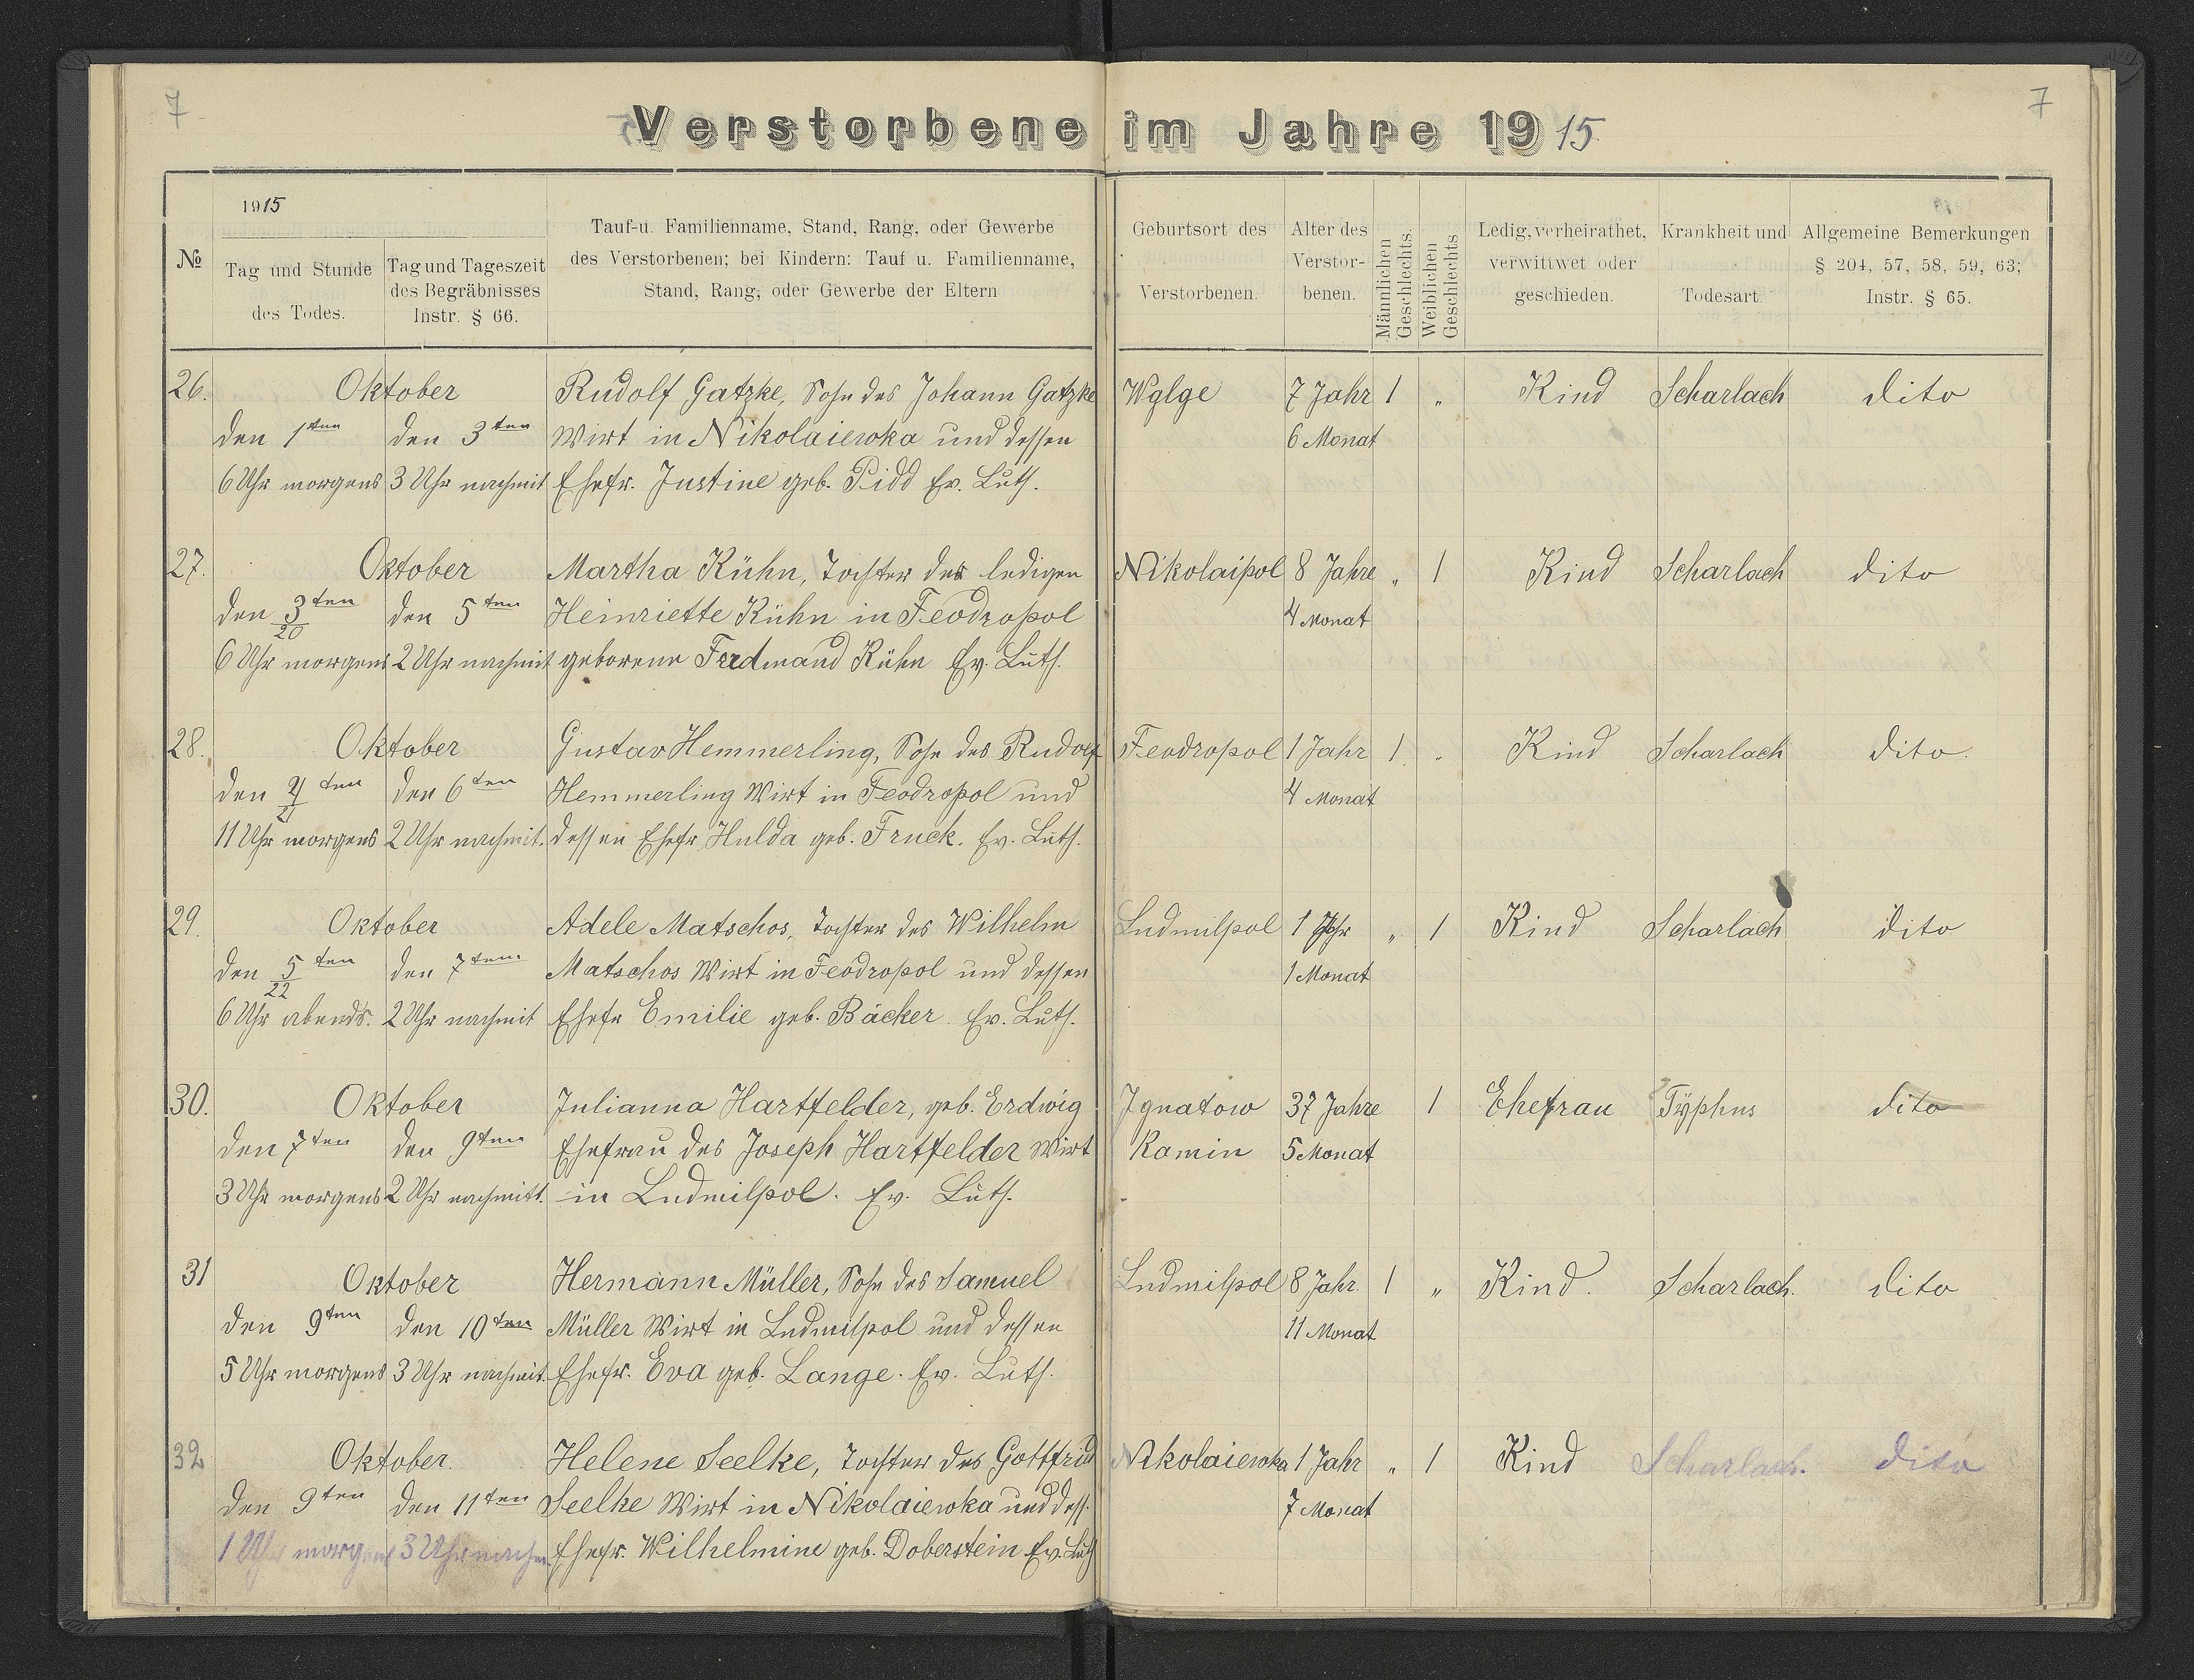 7
7
Verstorbene im Jahre 1915.
№
1915
Tag und Stunde
des Todes.
Tag und Tageszeit
des Begräbnisses
Instr. § 66.
Tauf-u. Familienname, Stand, Rang, oder Gewerbe
des Verstorbenen; bei Kindern: Tauf u. Familienname,
Stand, Rang, oder Gewerbe der Eltern
Geburtsort des
Verstorbenen.
Alter des
Verstor-
benen.
Männlichen
Geschlechts.
Weiblichen
Geschlechts
Ledig, verheirathet,
verwittwet oder
geschieden.
Krankheit und
Todesart.
Allgemeine Bemerkungen
§ 204, 57, 58, 59, 63;
Instr. § 65.
26. Oktober Rudolf Gatzke, Sohn des Johann Gatzke Wglge 7 Jahr 1 „ Kind Scharlach dito
den 1ten den 3ten Wirt in Nikolaiewka und dessen 6 Monat
6 Uhr morgens 3 Uhr nachmit Ehefr. Justine geb. Pidd Ev. Luth.
27. Oktober Martha Kühn, Tochter der ledigen Nikolaipol 8 Jahre „ 1 Kind Scharlach dito
den 3/20 ten den 5ten Heinriette Kühn in Feodropol 4 Monat
6 Uhr morgens 2 Uhr nachmit geborene Ferdinand Kühn Ev. Luth.
28. Oktober Gustav Hemmerling, Sohn des Rudolf Feodropol 1 Jahr 1 „ Kind Scharlach dito.
den 4/21 ten den 6ten Hemmerling Wirt in Feodropol und 4 Monat
11 Uhr morgens 2 Uhr nachmit. dessen Ehefr Hulda geb. Truck. Ev. Luth.
29. Oktober Adele Matschos, Tochter des Wilhelm Ludmilpol 1 Jahr „ 1 Kind Scharlach dito
den 5/22 ten den 7ten Matschos Wirt in Feodropol und dessen 1 Monat
6 Uhr abends. 2 Uhr nachmit Ehefr Emilie geb. Bäcker. Ev. Luth.
30. Oktober Julianna Hartfelder, geb. Erdwig Ignatow 37 Jahre 1 Ehefrau Typhus dito
den 7ten den 9ten Ehefrau des Joseph Hartfelder Wirt Kamin 5 Monat
3 Uhr morgens 2 Uhr nachmitt. in Ludmilpol. Ev. Luth.
31 Oktober Hermann Müller, Sohn des Samuel Ludmilpol 8 Jahr. 1 „ Kind. Scharlach. dito
den 9ten den 10ten Müller Wirt in Ludmilpol und dessen 11 Monat
5 Uhr morgens 3 Uhr nachmit. Ehefr. Eva geb. Lange. Ev. Luth.
32 Oktober. Helene Seelke, Tochter des Gottfrid Nikolaiewka 1 Jahr „ 1 Kind Scharlach. dito
den 9ten den 11ten Seelke Wirt in Nikolaiewka und dess. 7 Monat
1 Uhr morgens 3 Uhr nachm. Ehefr. Wilhelmine geb. Doberstein Ev. Luth